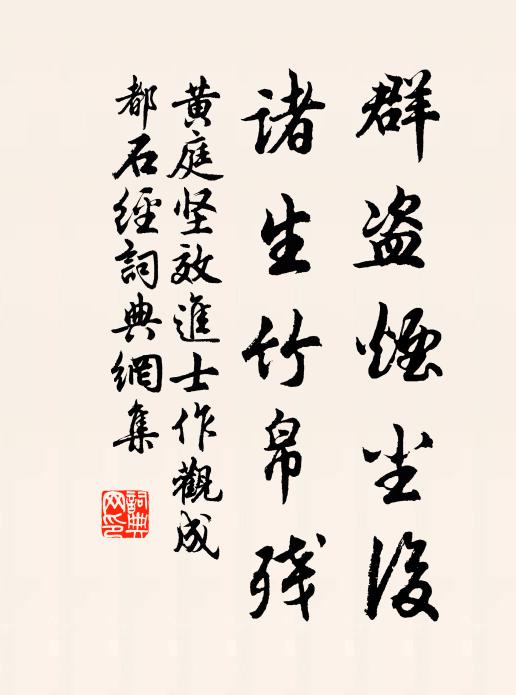 群盗煙尘後
諸生竹帛残
黄庭坚效進士作觀成
都石經詞典網集
詞典网印